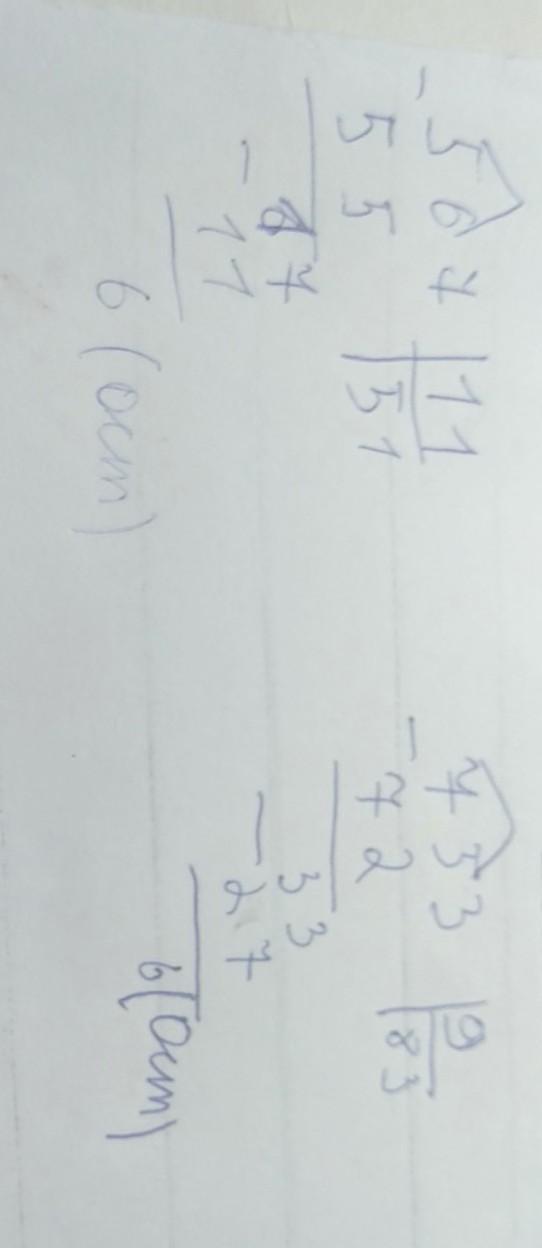 - 567 | 11
55 | 51
- 17
11
6 (ост)
- 753 | 9
72 | 83
- 33
27
6 (ост)